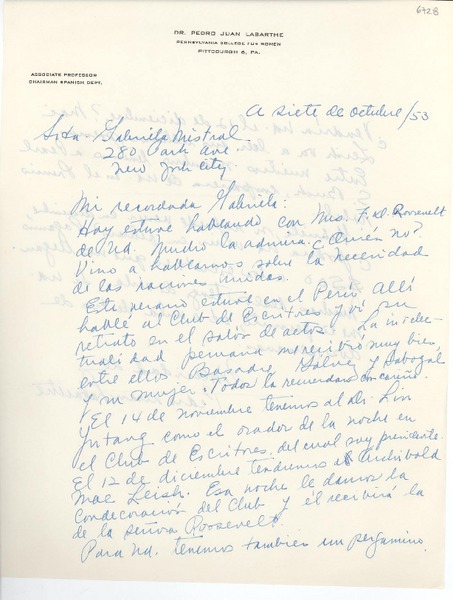 6728
DR. PEDRO JUAN LABARTHE
PENNSYLVANIA COLLEGE FOR WOMEN
PITTSBURGH 6, PA.
ASSOCIATE PROFESSOR
CHAIRMAN SPANISH DEPT.
A siete de octubre/53
Srta. Gabriela Mistral
280 Park Ave
New York City
Mi recordada Gabriela:
Hoy estuve hablando con Mrs. F. D. Roosevelt
de Ud. Mucho la admira ¿Quién no?
Vino a hablarnos sobre la necesidad
de las naciones unidas.
Este verano estuve en el Perú. Allí
hablé al Club de Escritores y vi su
retrato en el salón de actos. La intelec-
tualidad peruana me recibió muy bien,
entre ellos Basadre, Gálvez y Sabogal
y su mujer. Todos la recuerdan con cariño.
El 14 de noviembre tenemos al Dr. Lin
Yutang como el orador de la noche en
el Club de Escritores, del cual soy presidente.
El 12 de diciembre tendremos a Archibald
Mac Leish. Esa noche le damos la
condecoración del Club y él recibirá la
de la señora Roosevelt.
Para Ud. tenemos también un pergamino.